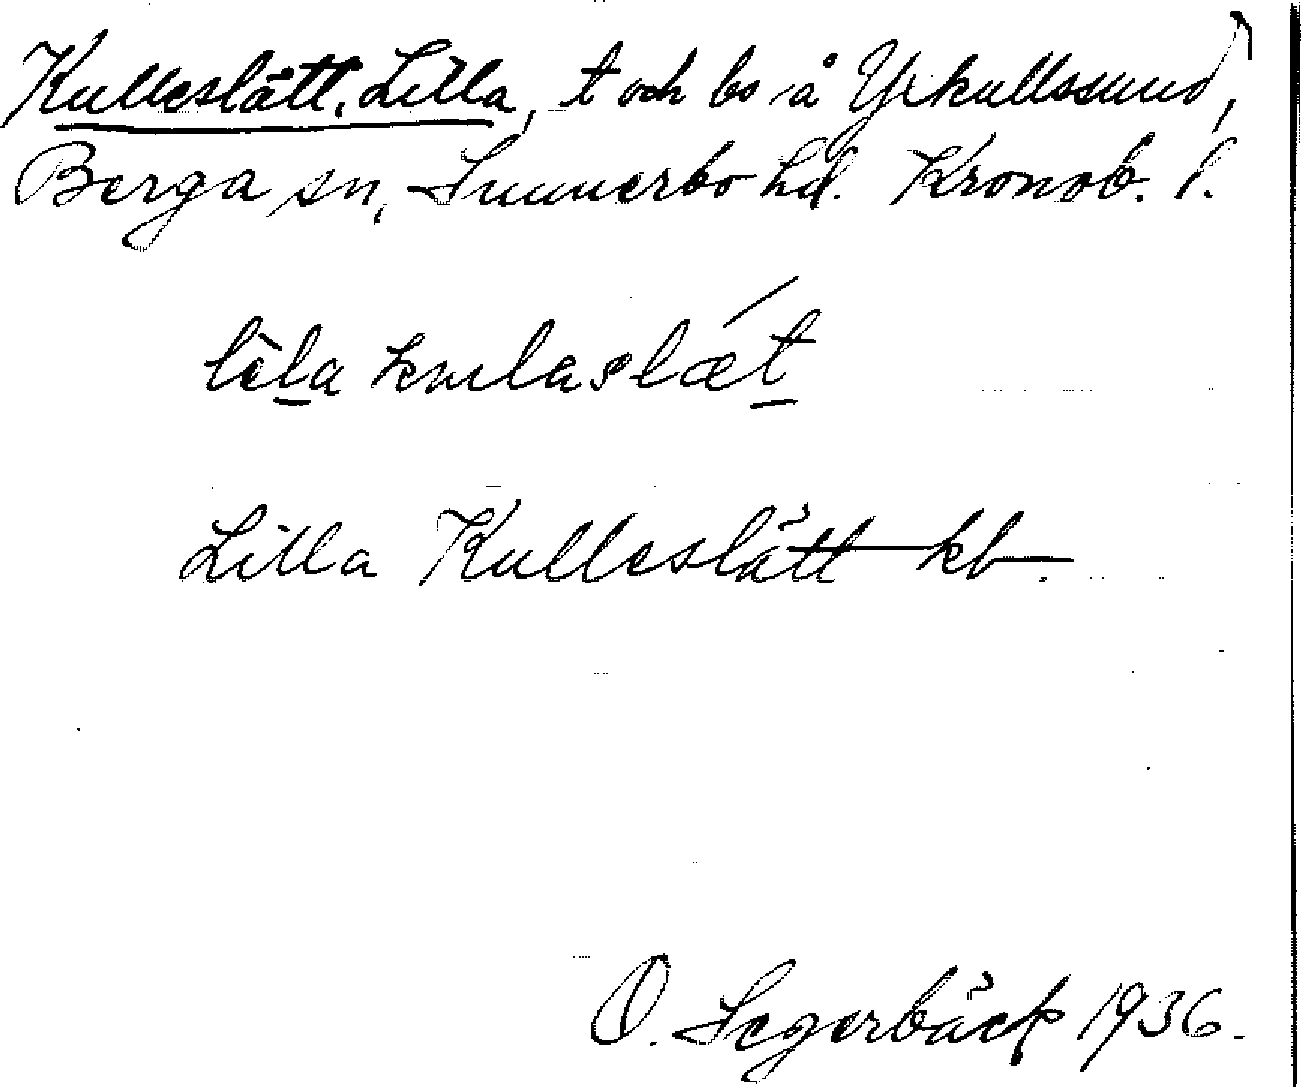 Kulleslätt, Lilla, t och bs å Yxkullssund,
Berga sn, Sunnerbo hd. Kronob. l.
Lilla Kulleslätt kb.
O. Segerbäck 1936.